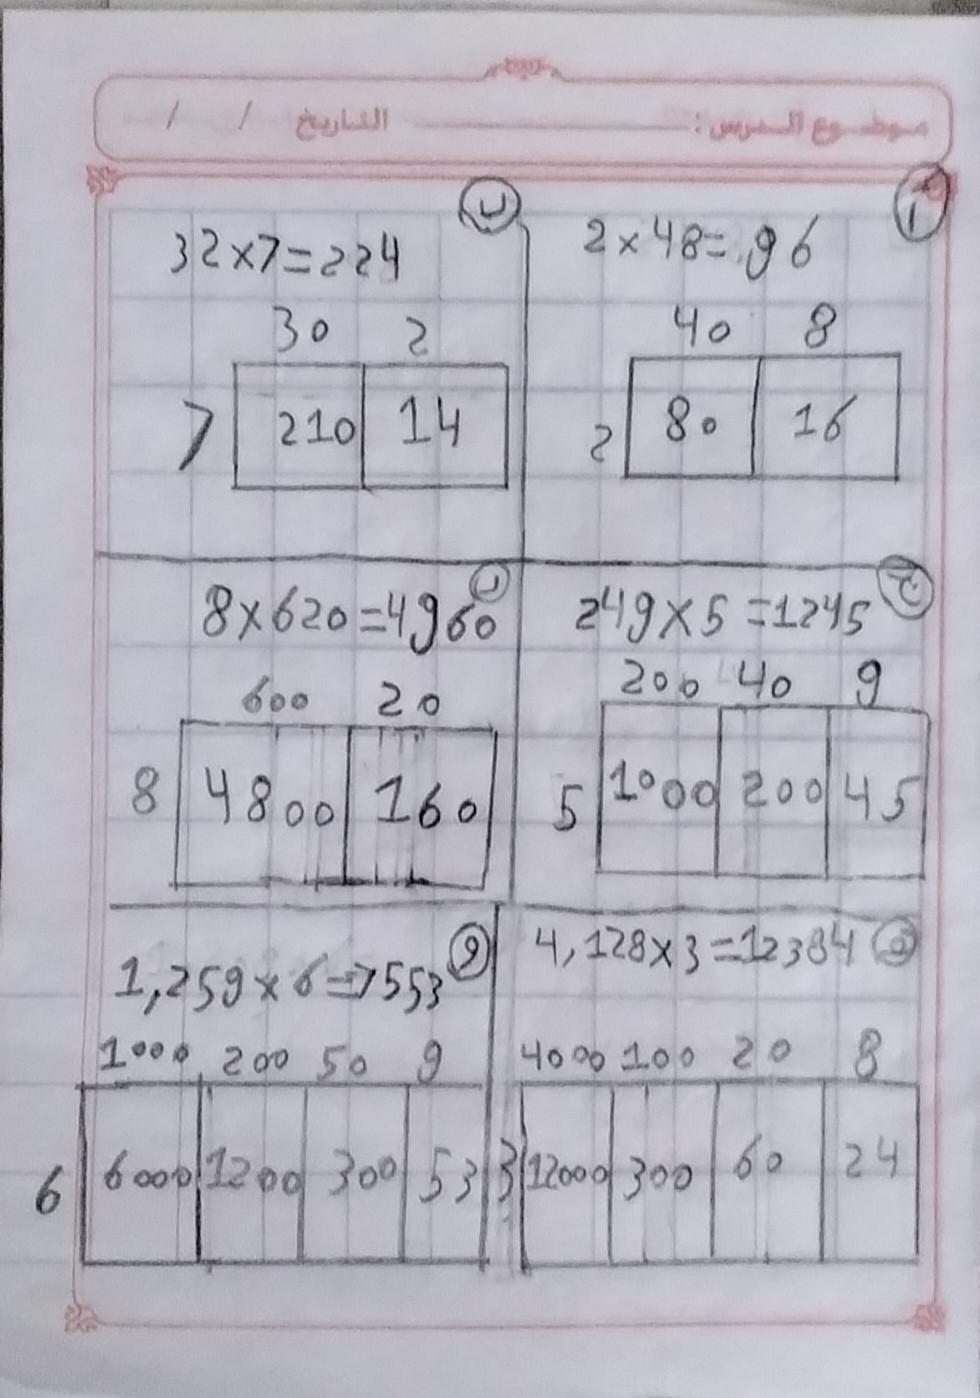 موضوع الدرس: التاريخ / /
أ
2×48=96
40 8
2 80 16
ب
32×7=224
30 2
7 210 14
ج
249×5=1245
200 40 9
5 1000 200 45
د
8×620=4960
600 20
8 4800 160
ه
4,128×3=12384
4000 100 20 8
3 12000 300 60 24
و
1,259×6=7553
1000 200 50 9
6 6000 1200 300 53